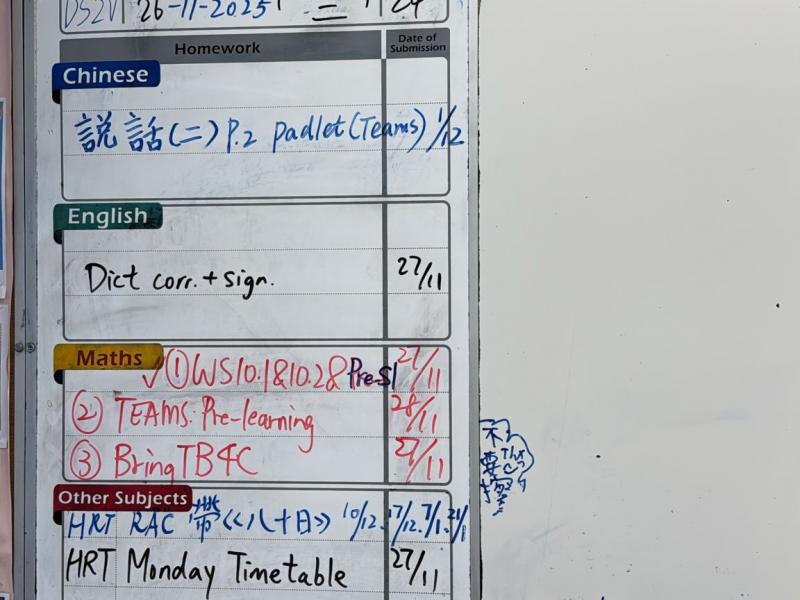 26-11-2025
Homework
Date of Submission
Chinese
説話(二) P.2 padlet (Teams) 1/12
English
Dict corr. + sign. 27/11
Maths
✓ ① WS10.1&10.2& Pre-S1 27/11
② TEAMS: Pre-learning 28/11
③ Bring TB4C 27/11
Other Subjects
HRT RAC 帶《八十日》 10/12. 17/12. 7/1. 21/1
HRT Monday Timetable 27/11
不
要